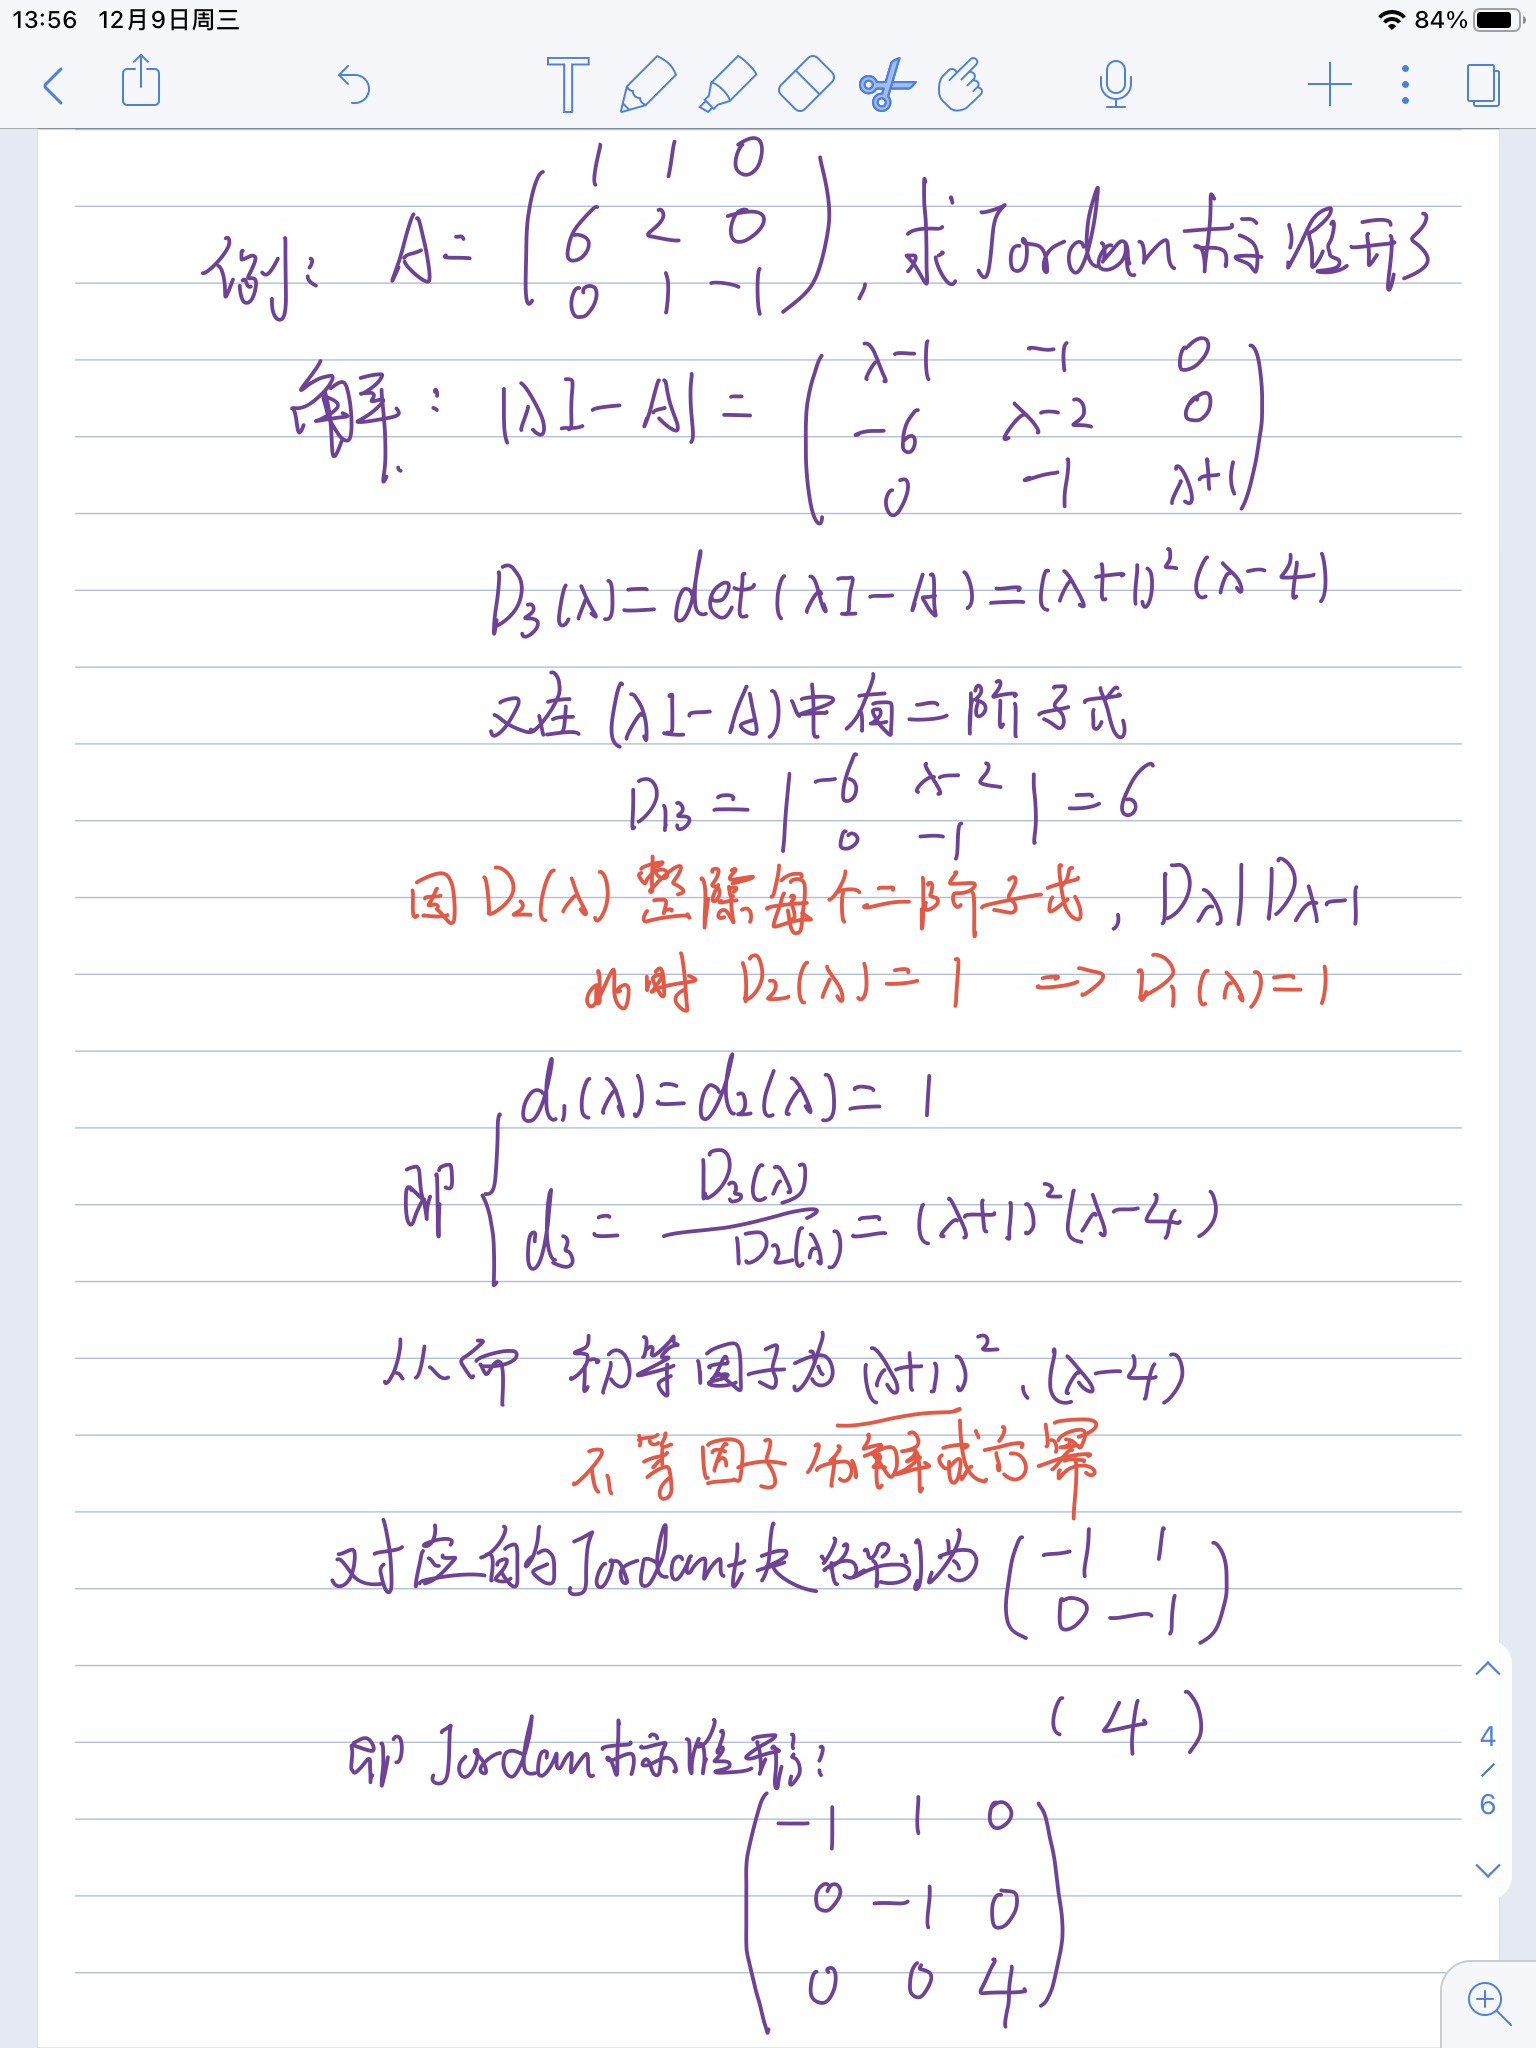 13:56 12月9日周三 84%
例: A= ( 1 1 0
6 2 0
0 1 -1 ), 求Jordan标准形
解: |λI-A| = ( λ-1 -1 0
-6 λ-2 0
0 -1 λ+1 )
D₃(λ)=det(λI-A)=(λ+1)²(λ-4)
又在(λI-A)中有二阶子式
D₁₃ = | -6 λ-2
0 -1 | = 6
因D₂(λ)整除每个二阶子式, Dλ|Dλ-1
此时 D₂(λ)=1 => D₁(λ)=1
d₁(λ)=d₂(λ)=1
即 { d₃ = D₃(λ)/D₂(λ) = (λ+1)²(λ-4)
从而 初等因子为 (λ+1)²、(λ-4)
不等因子分解成方幂
对应的Jordan块分别为 ( -1 1
0 -1 )
(4)
即Jordan标准形:
( -1 1 0
0 -1 0
0 0 4 )
4
/
6